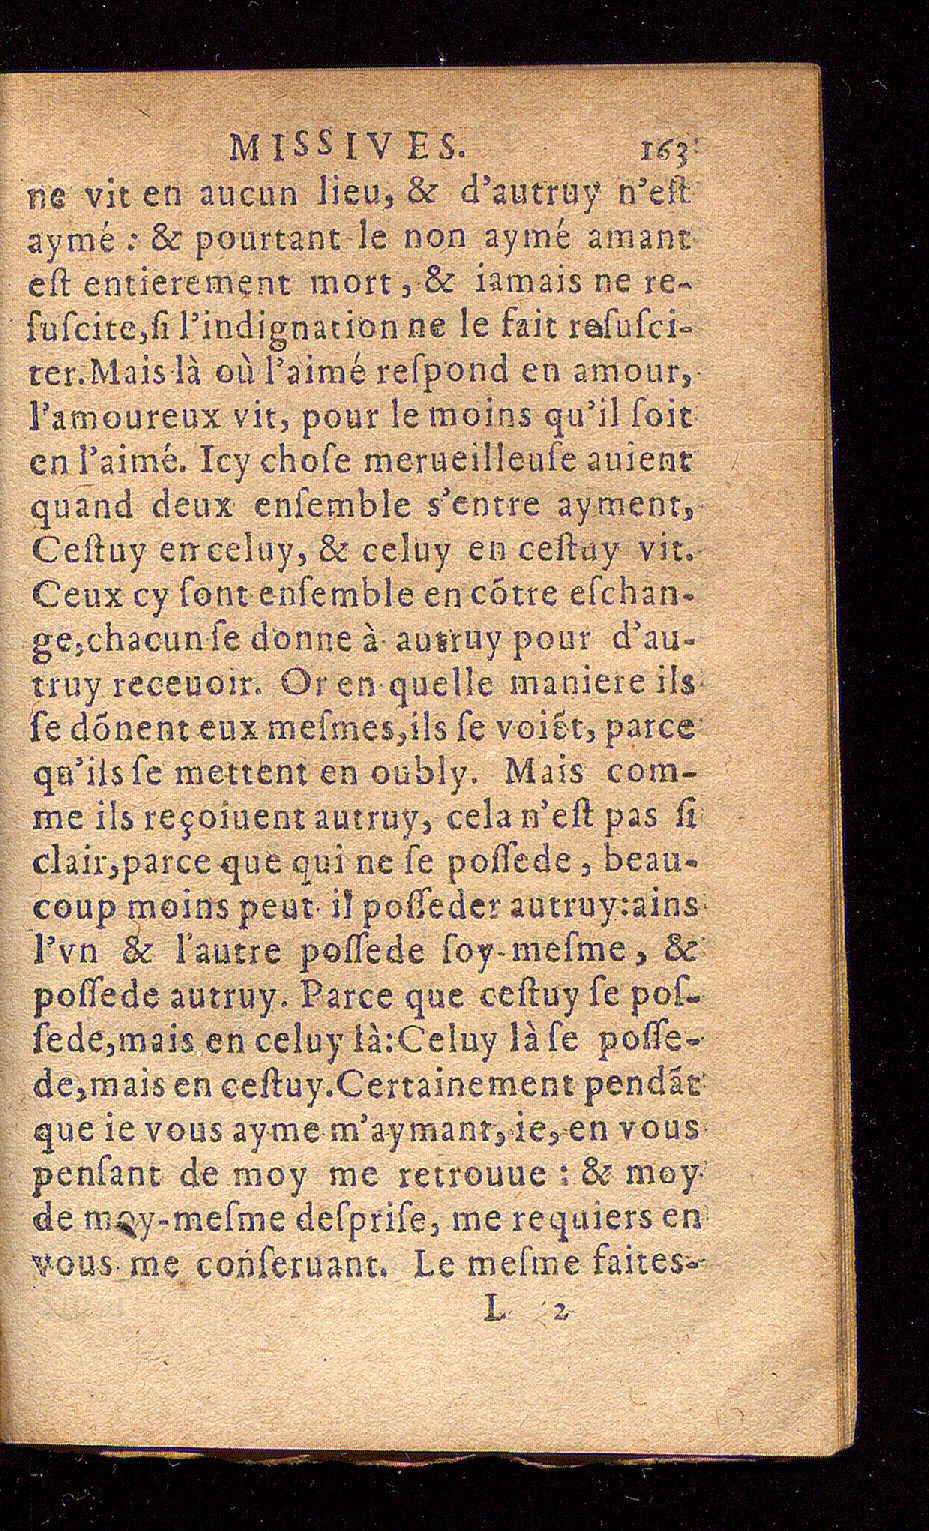 MISSIVES. 163
ne vit en aucun lieu, & d'autruy n'eſt
aymé : & pourtant le non aymé amant
eſt entierement mort, & iamais ne re-
ſuſcite, ſi l'indignation ne le fait reſuſci-
ter. Mais là où l'aimé reſpond en amour,
l'amoureux vit, pour le moins qu'il ſoit
en l'aimé. Icy choſe merueilleuſe auient
quand deux enſemble s'entre ayment,
Ceſtuy en celuy, & celuy en ceſtuy vit.
Ceux cy ſont enſemble en cõtre eſchan-
ge, chacun ſe donne à autruy pour d'au-
truy receuoir. Or en quelle maniere ils
ſe dõnent eux meſmes, ils ſe voiẽt, parce
qu'ils ſe mettent en oubly. Mais com-
me ils reçoiuent autruy, cela n'eſt pas ſi
clair, parce que qui ne ſe poſſede, beau-
coup moins peut il poſſeder autruy: ains
l'vn & l'autre poſſede ſoy-meſme, &
poſſede autruy. Parce que ceſtuy ſe poſ-
ſede, mais en celuy là: Celuy là ſe poſſe-
de, mais en ceſtuy. Certainement pendãt
que ie vous ayme m'aymant, ie, en vous
penſant de moy me retrouue : & moy
de moy-meſme deſpriſe, me requiers en
vous me conſeruant. Le meſme faites-
L 2